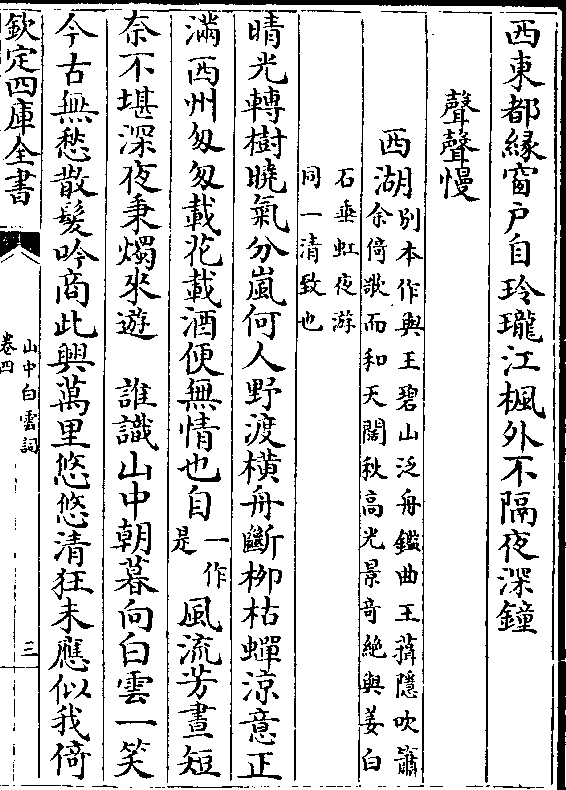 西東都緣窗戶自玲瓏江楓外不隔夜深鐘
聲聲慢
西湖別本作與王碧山泛舟鑑曲王蕺隱吹簫
余倚歌而和天闊秋高光景奇絕與姜白
石垂虹夜游
同一清致也
晴光轉樹曉氣分嵐何人野渡橫舟斷栁枯蟬涼意正
滿西州匆匆載花載酒便無情也自一作是風流芳晝短
奈不堪深夜秉燭來遊　誰識山中朝暮向白雲一笑
今古無愁散髪吟商此興萬里悠悠清狂未應似我倚
欽定四庫全書
山中白雲詞
卷四
三